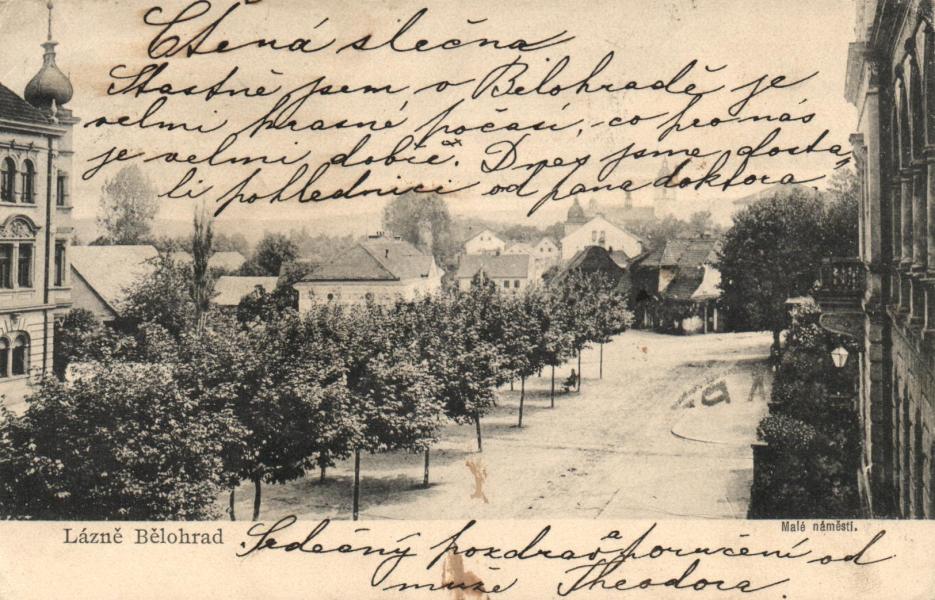 Ctěná slečna
Stastně jsem v Bělohradě je
velmi krasné počasí, co pro nás
je velmi dobře. Dnes jsme dosta-
li pohlednici od pana doktora.
Lázně Bělohrad
Malé náměstí.
Srdečný pozdrav a poručení od
muže Theodora.